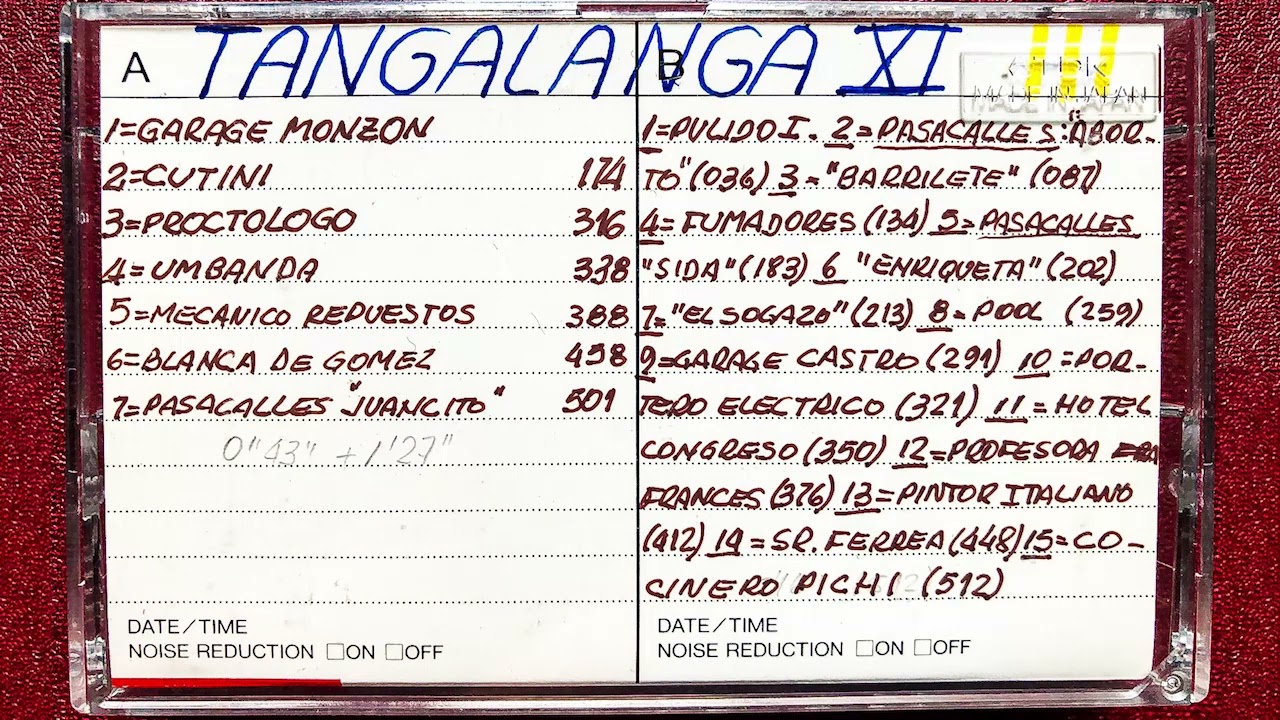 A TANGALANGA XI
B
TDK
MADE IN JAPAN
1=GARAGE MONZON
2=CUTINI 174
3=PROCTOLOGO 316
4=UMBANDA 338
5=MECANICO REPUESTOS 388
6=BLANCA DE GOMEZ 458
7=PASACALLES "JUANCITO" 501
0"43" + 1'27"
DATE/TIME
NOISE REDUCTION □ON □OFF
1=PULIDO I. 2=PASACALLES: "ABOR-
TO" (036) 3="BARRILETE" (087)
4=FUMADORES (134) 5=PASACALLES
"SIDA" (183) 6 "ENRIQUETA" (202)
7="EL SOGAZO" (213) 8=POOL (259)
9=GARAGE CASTRO (291) 10=POR-
TERO ELECTRICO (321) 11=HOTEL
CONGRESO (350) 12=PROFESORA
FRANCES (376) 13=PINTOR ITALIANO
(412) 14=SR. FERREA (448) 15=CO-
CINERO PICHI (512)
DATE/TIME
NOISE REDUCTION □ON □OFF